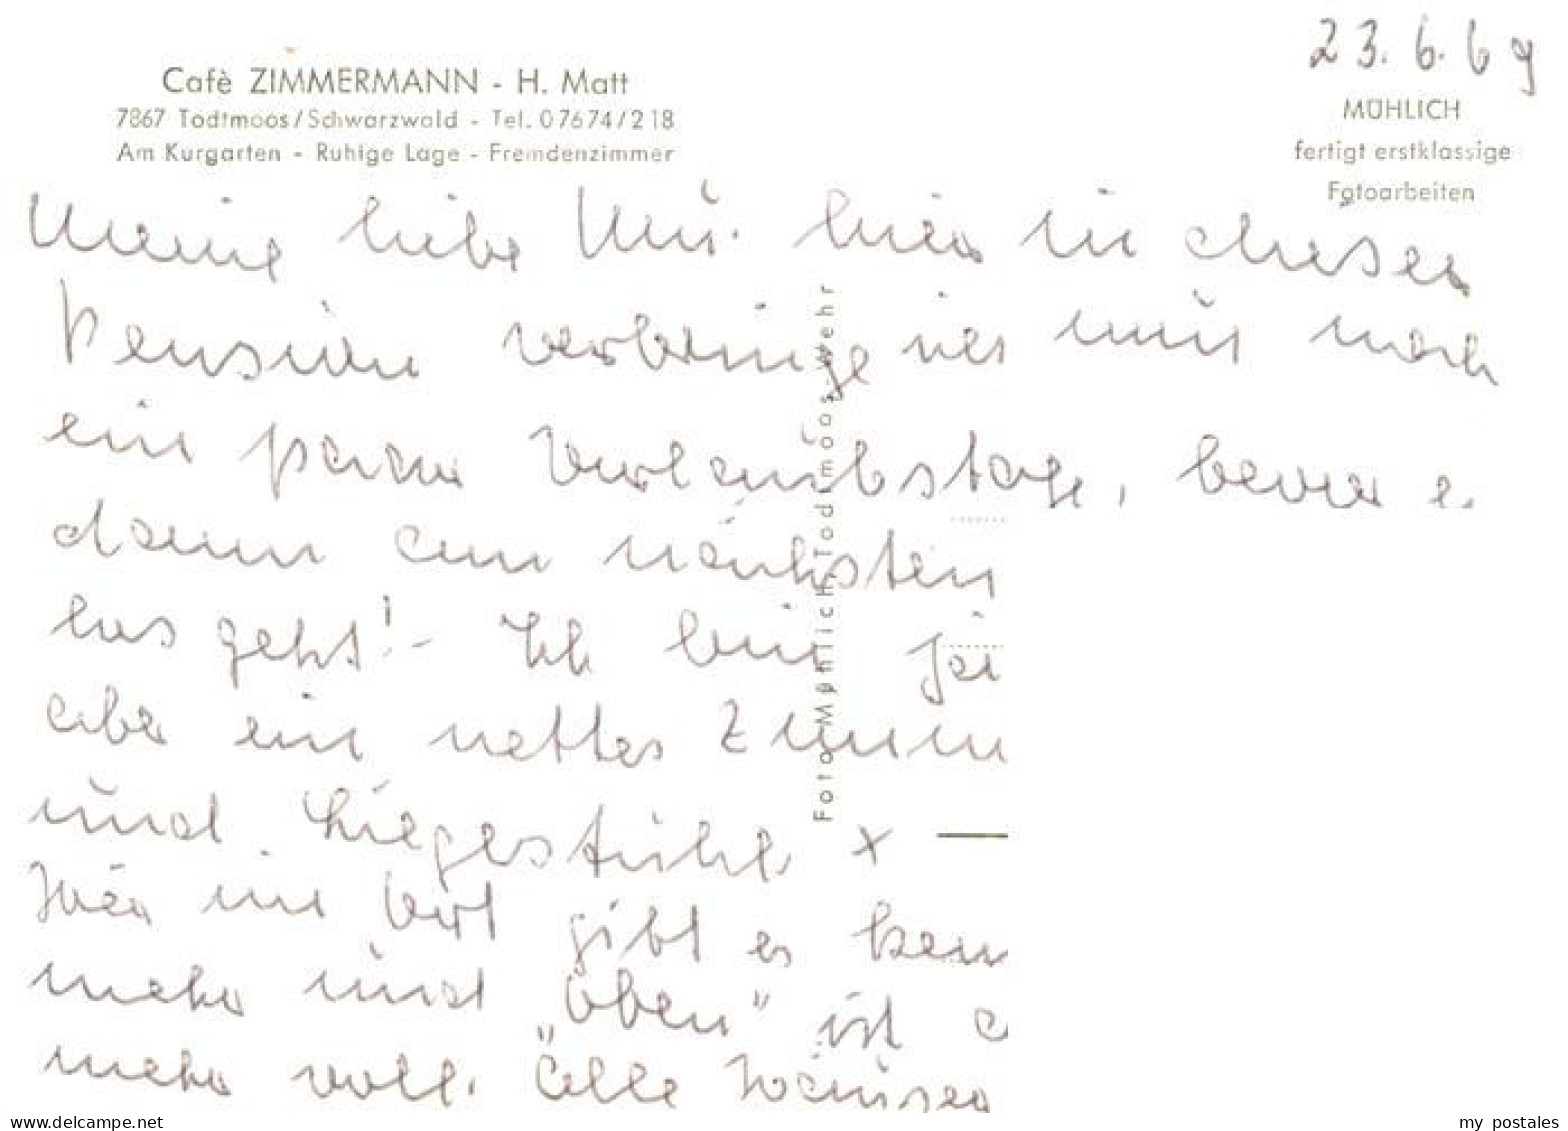 23. 6. 69
Cafè ZIMMERMANN - H. Matt
7867 Todtmoos/Schwarzwald - Tel. 07674/218
Am Kurgarten - Ruhige Lage - Fremdenzimmer
MÜHLICH
fertigt erstklassige
Fotoarbeiten
Meine liebe Mu. hier in dieser
Pension verbringe ich nun noch
ein paar Urlaubstage, bevor e
dann am nächsten
los geht! - Ich bin
aber ein nettes Zimm
und Liegestuhl
Hier im Ort gibt es kein
mehr und „Oben" ist
mehr voll. Alle Häuser
Foto Mühlich, Todtmoos-Wehr
www.delcampe.net
my_postales